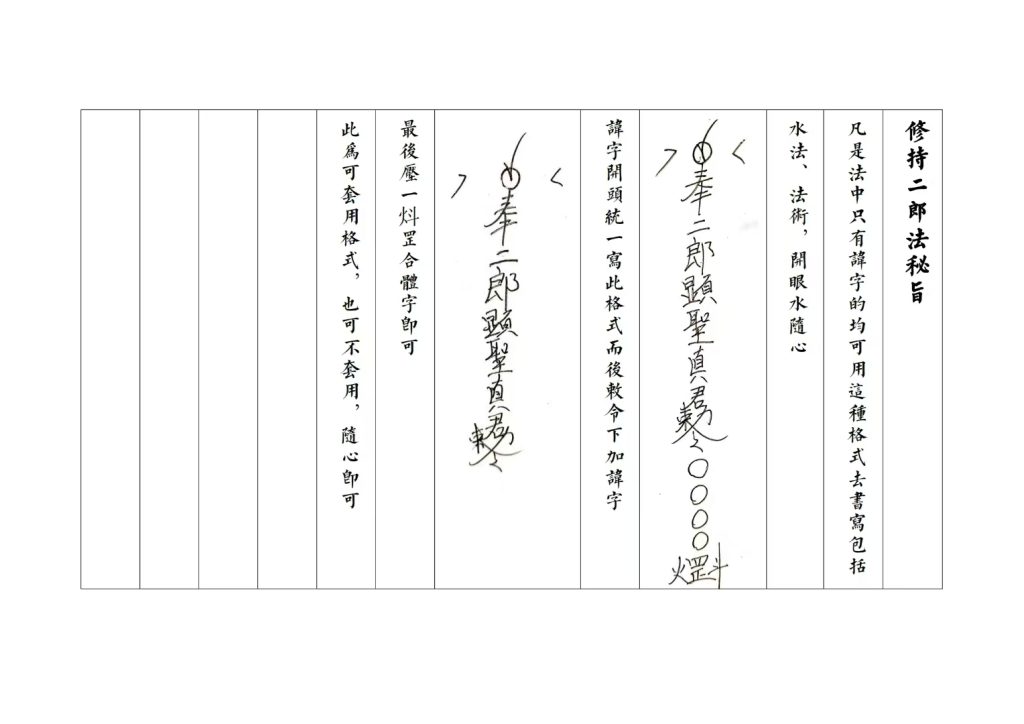 修持二郎法秘旨
凡是法中只有諱字的均可用這種格式去書寫包括
水法、法術，開眼水隨心
奉二郎顯聖真君敕令〇〇〇〇
諱字開頭統一寫此格式而後敕令下加諱字
奉二郎顯聖真君敕令
最後壓一炓罡合體字即可
此為可套用格式，也可不套用，隨心即可